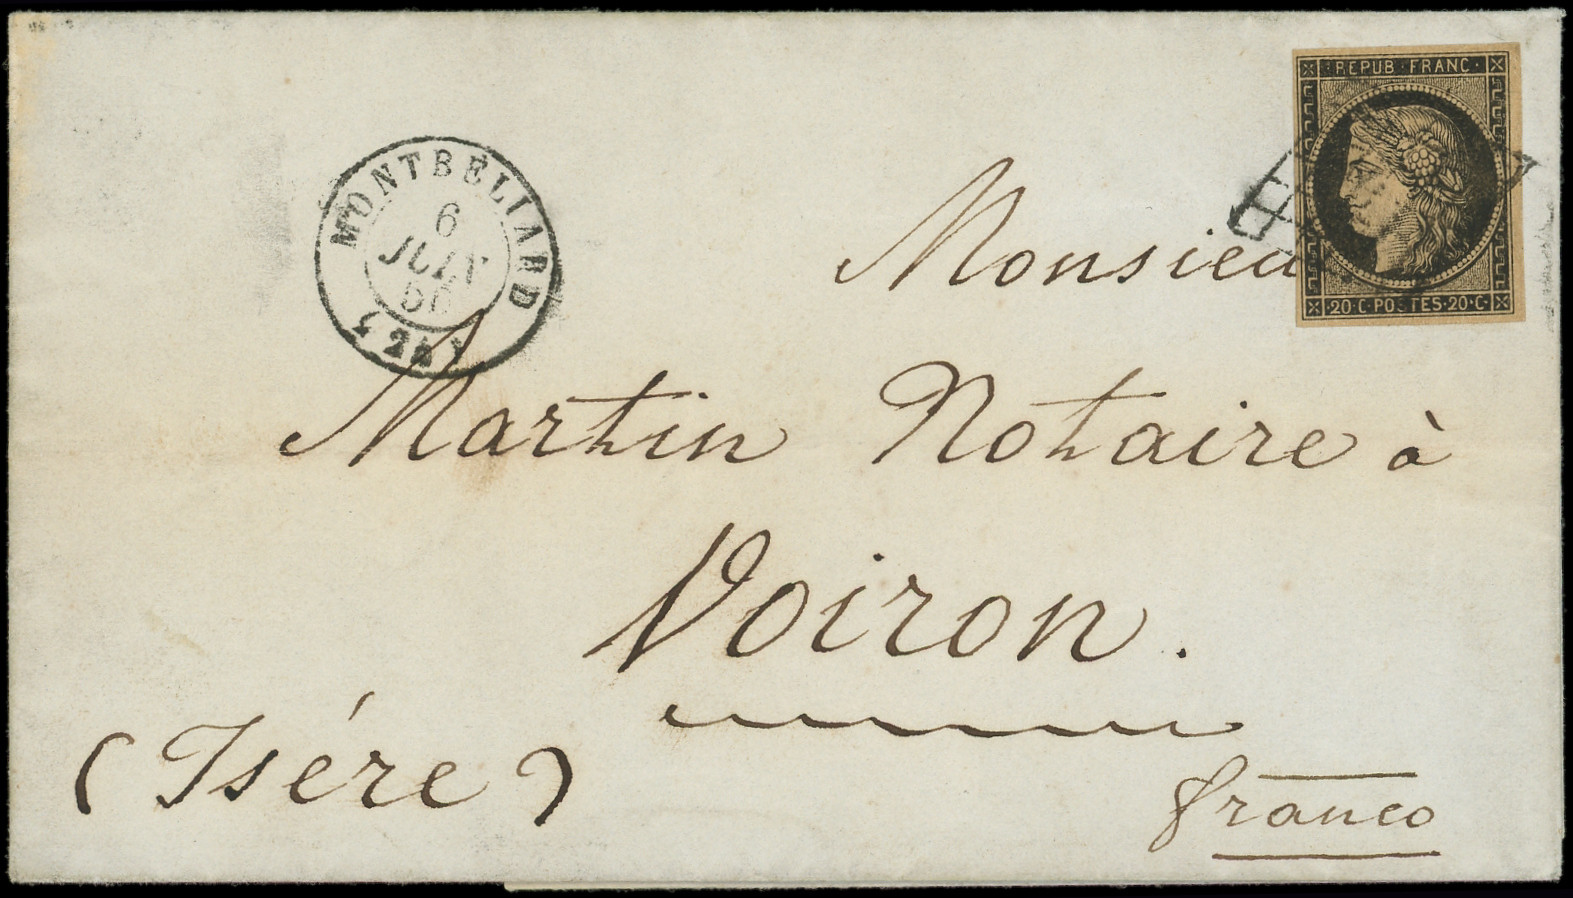 REPUB · FRANC ·
20 · C · POSTES · 20 · C ·
MONTBÉLIARD
6
JUIN
50
Monsieu
Martin Notaire à
Voiron.
(Isére)
franco